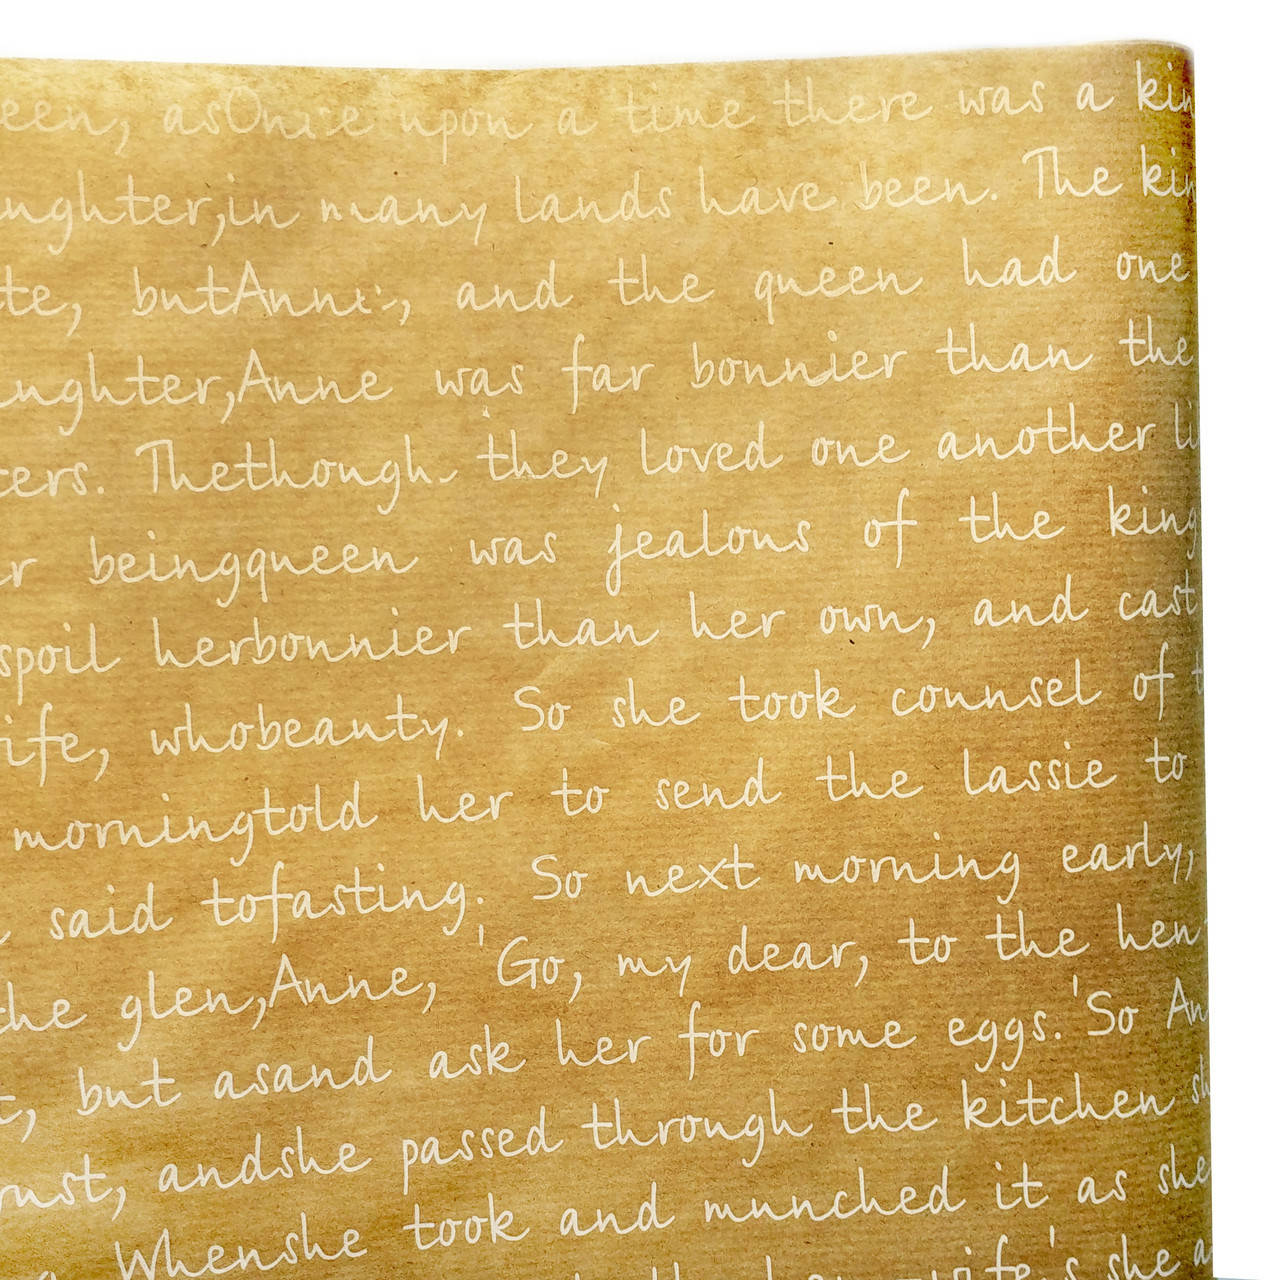 een, asOnce upon a time there was a kin
ughter,in many lands have been. The kin
te, butAnne, and the queen had one
aughter,Anne was far bonnier than the
ters. Thethough they loved one another li
er beingqueen was jealous of the king
spoil herbonnier than her own, and cast
ife, whobeauty. So she took counsel of t
morningtold her to send the lassie to
said tofasting. So next morning early,
the glen,Anne, 'Go, my dear, to the hen
t, but asand ask her for some eggs.'So An
rust, andshe passed through the kitchen sh
Whenshe took and munched it as she
wife's she a